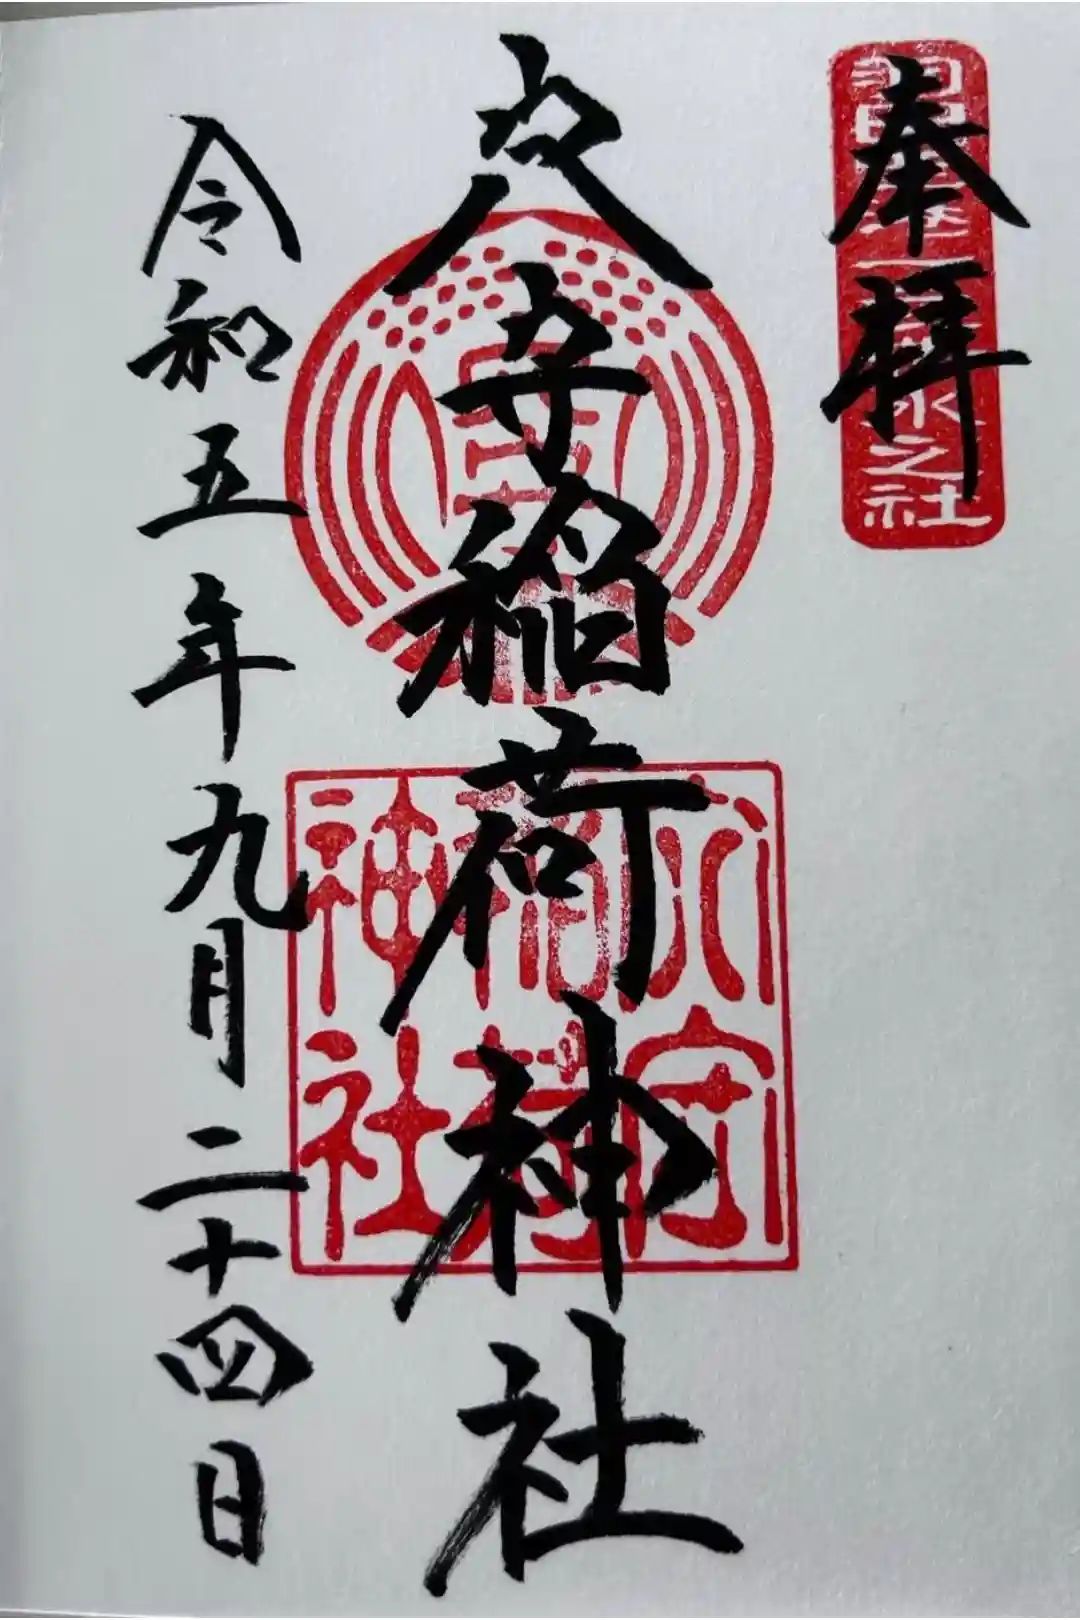 奉拝
之社
穴守稲荷神社
穴守
稲荷
神社
令和五年九月二十四日